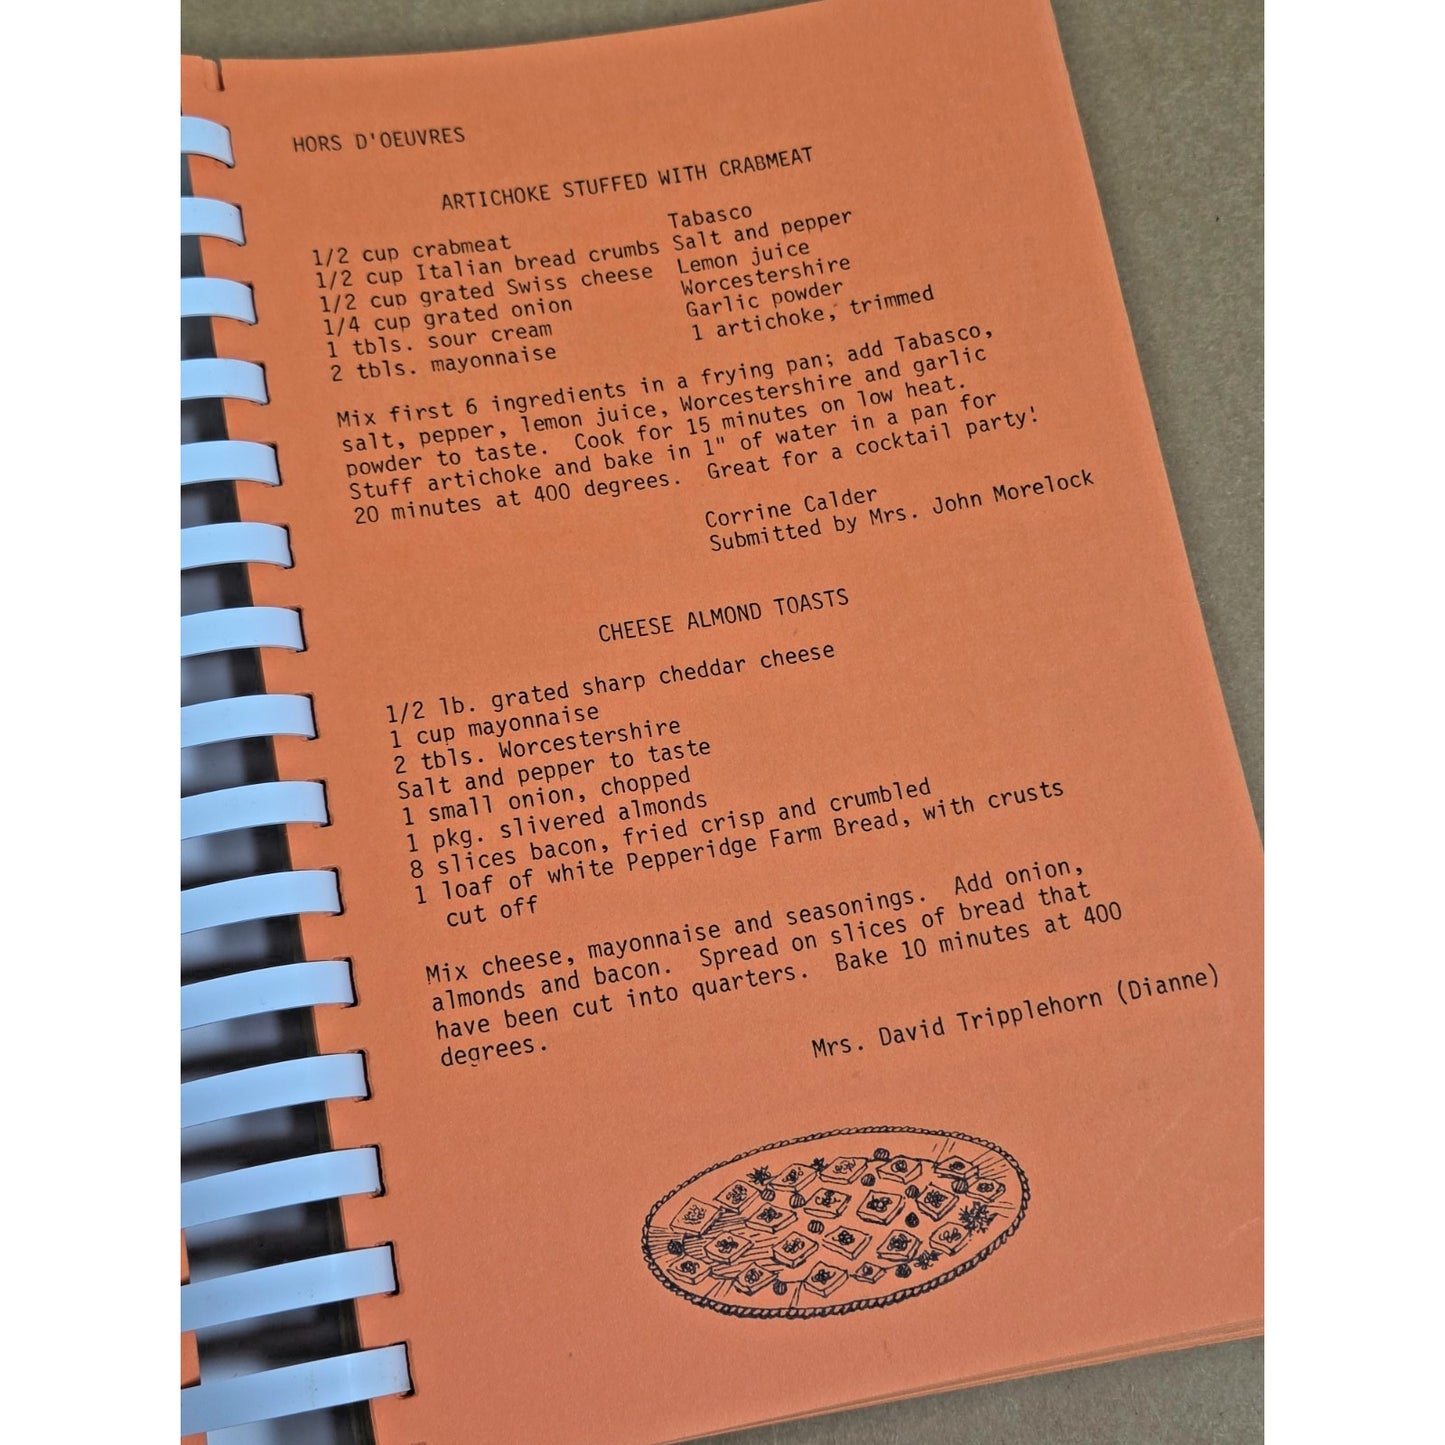 HORS D'OEUVRES
ARTICHOKE STUFFED WITH CRABMEAT
1/2 cup crabmeat
1/2 cup Italian bread crumbs
1/2 cup grated Swiss cheese
1/4 cup grated onion
1 tbls. sour cream
2 tbls. mayonnaise
Tabasco
Salt and pepper
Lemon juice
Worcestershire
Garlic powder
1 artichoke, trimmed
Mix first 6 ingredients in a frying pan; add Tabasco,
salt, pepper, lemon juice, Worcestershire and garlic
powder to taste. Cook for 15 minutes on low heat.
Stuff artichoke and bake in 1" of water in a pan for
20 minutes at 400 degrees. Great for a cocktail party!
Corrine Calder
Submitted by Mrs. John Morelock
CHEESE ALMOND TOASTS
1/2 lb. grated sharp cheddar cheese
1 cup mayonnaise
2 tbls. Worcestershire
Salt and pepper to taste
1 small onion, chopped
1 pkg. slivered almonds
8 slices bacon, fried crisp and crumbled
1 loaf of white Pepperidge Farm Bread, with crusts
cut off
Mix cheese, mayonnaise and seasonings. Add onion,
almonds and bacon. Spread on slices of bread that
have been cut into quarters. Bake 10 minutes at 400
degrees.
Mrs. David Tripplehorn (Dianne)